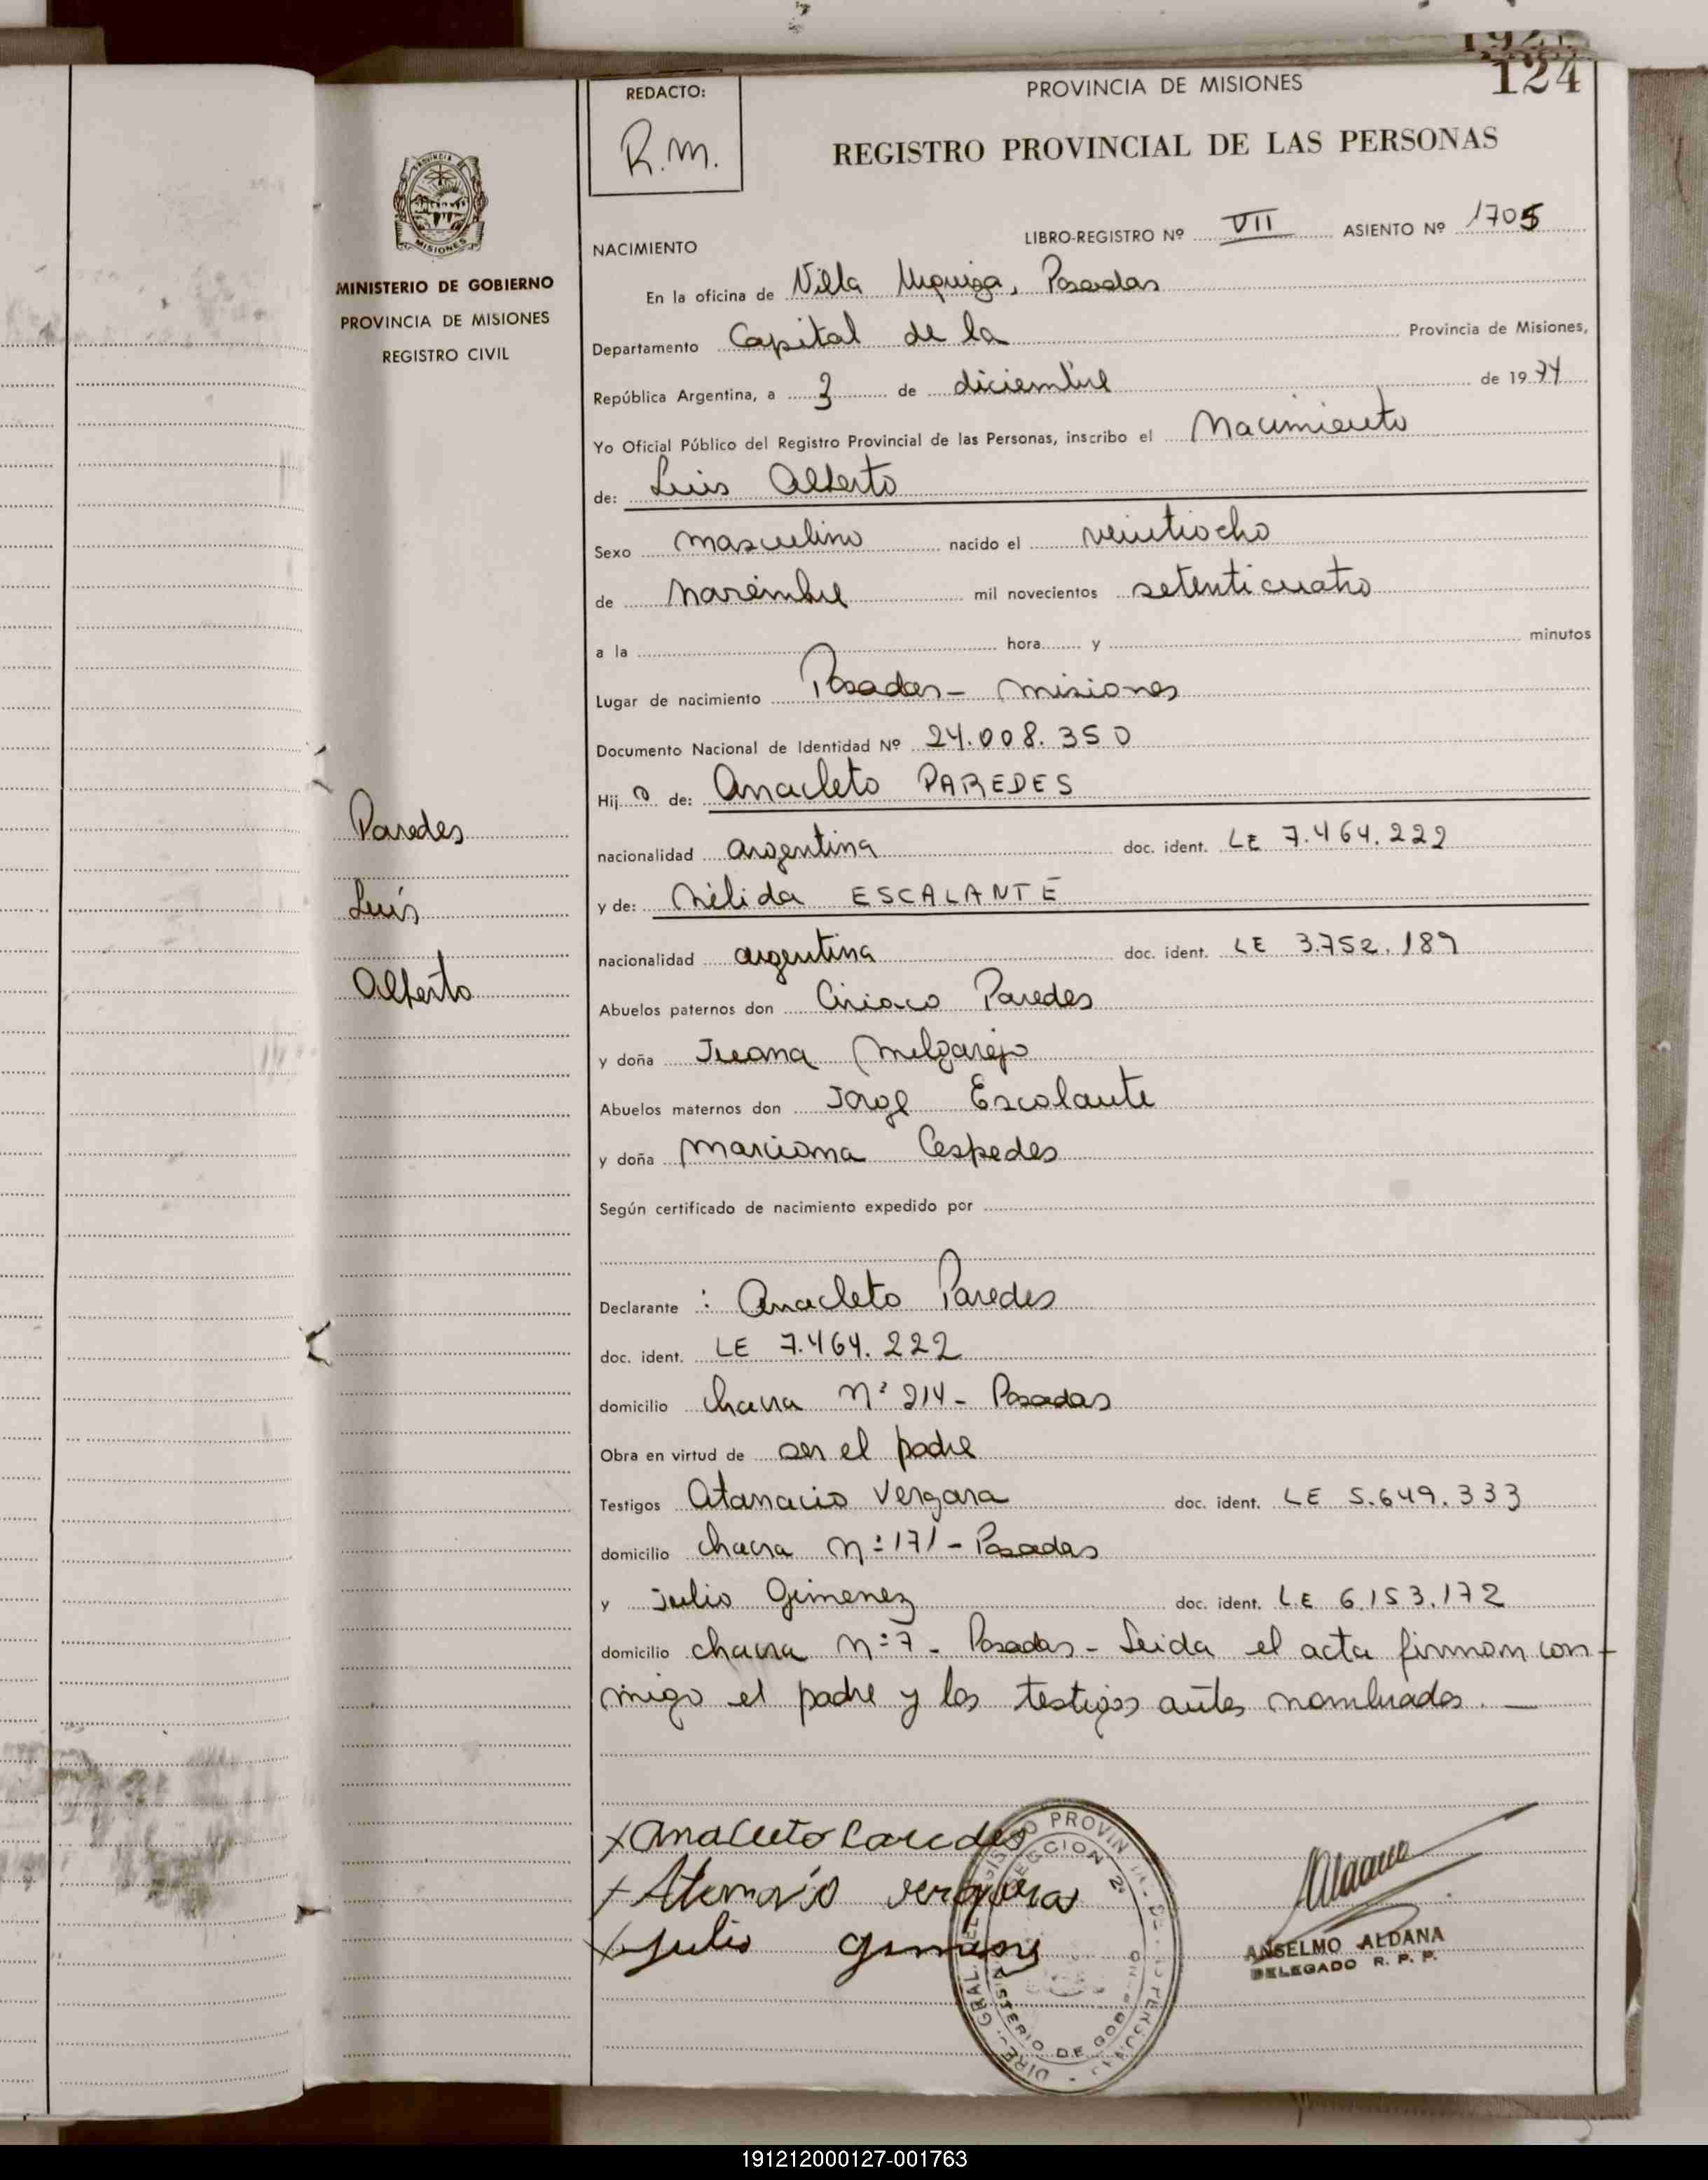 124
REDACTO:
R.M.
PROVINCIA DE MISIONES
REGISTRO PROVINCIAL DE LAS PERSONAS
MISIONES
MINISTERIO DE GOBIERNO
PROVINCIA DE MISIONES
REGISTRO CIVIL
LIBRO-REGISTRO Nº VII ASIENTO Nº 1705
NACIMIENTO
En la oficina de Villa Urquiza, Posadas
Departamento Capital de la Provincia de Misiones,
República Argentina, a 3 de diciembre de 1974
Yo Oficial Público del Registro Provincial de las Personas, inscribo el Nacimiento
de: Luis Alberto
Sexo masculino nacido el veintiocho
de Noviembre mil novecientos setenticuatro
a la hora y minutos
Lugar de nacimiento Posadas - Misiones
Documento Nacional de Identidad Nº 24.008.350
Hijo de: Anacleto PAREDES
Paredes
nacionalidad argentina doc. ident. LE 7.464.222
y de: Nélida ESCALANTE
Luís
nacionalidad argentina doc. ident. LE 3.752.189
Alberto
Abuelos paternos don Ciriaco Paredes
y doña Juana Melgarejo
Abuelos maternos don Jorge Escalante
y doña Marciana Cespedes
Según certificado de nacimiento expedido por
Declarante : Anacleto Paredes
doc. ident. LE 7.464.222
domicilio chacra Nº 214 - Posadas
Obra en virtud de ser el padre
Testigos Atanacio Vergara doc. ident. LE 5.649.333
domicilio chacra Nº 171 - Posadas
y Julio Gimenez doc. ident. LE 6.153.172
domicilio chacra Nº 7 - Posadas - Leida el acta firman con-
migo el padre y los testigos antes nombrados. —
Anacleto Paredes
Atanasio Vergara
Julio Gimenez
ANSELMO ALDANA
DELEGADO R. P. P.
191212000127-001763